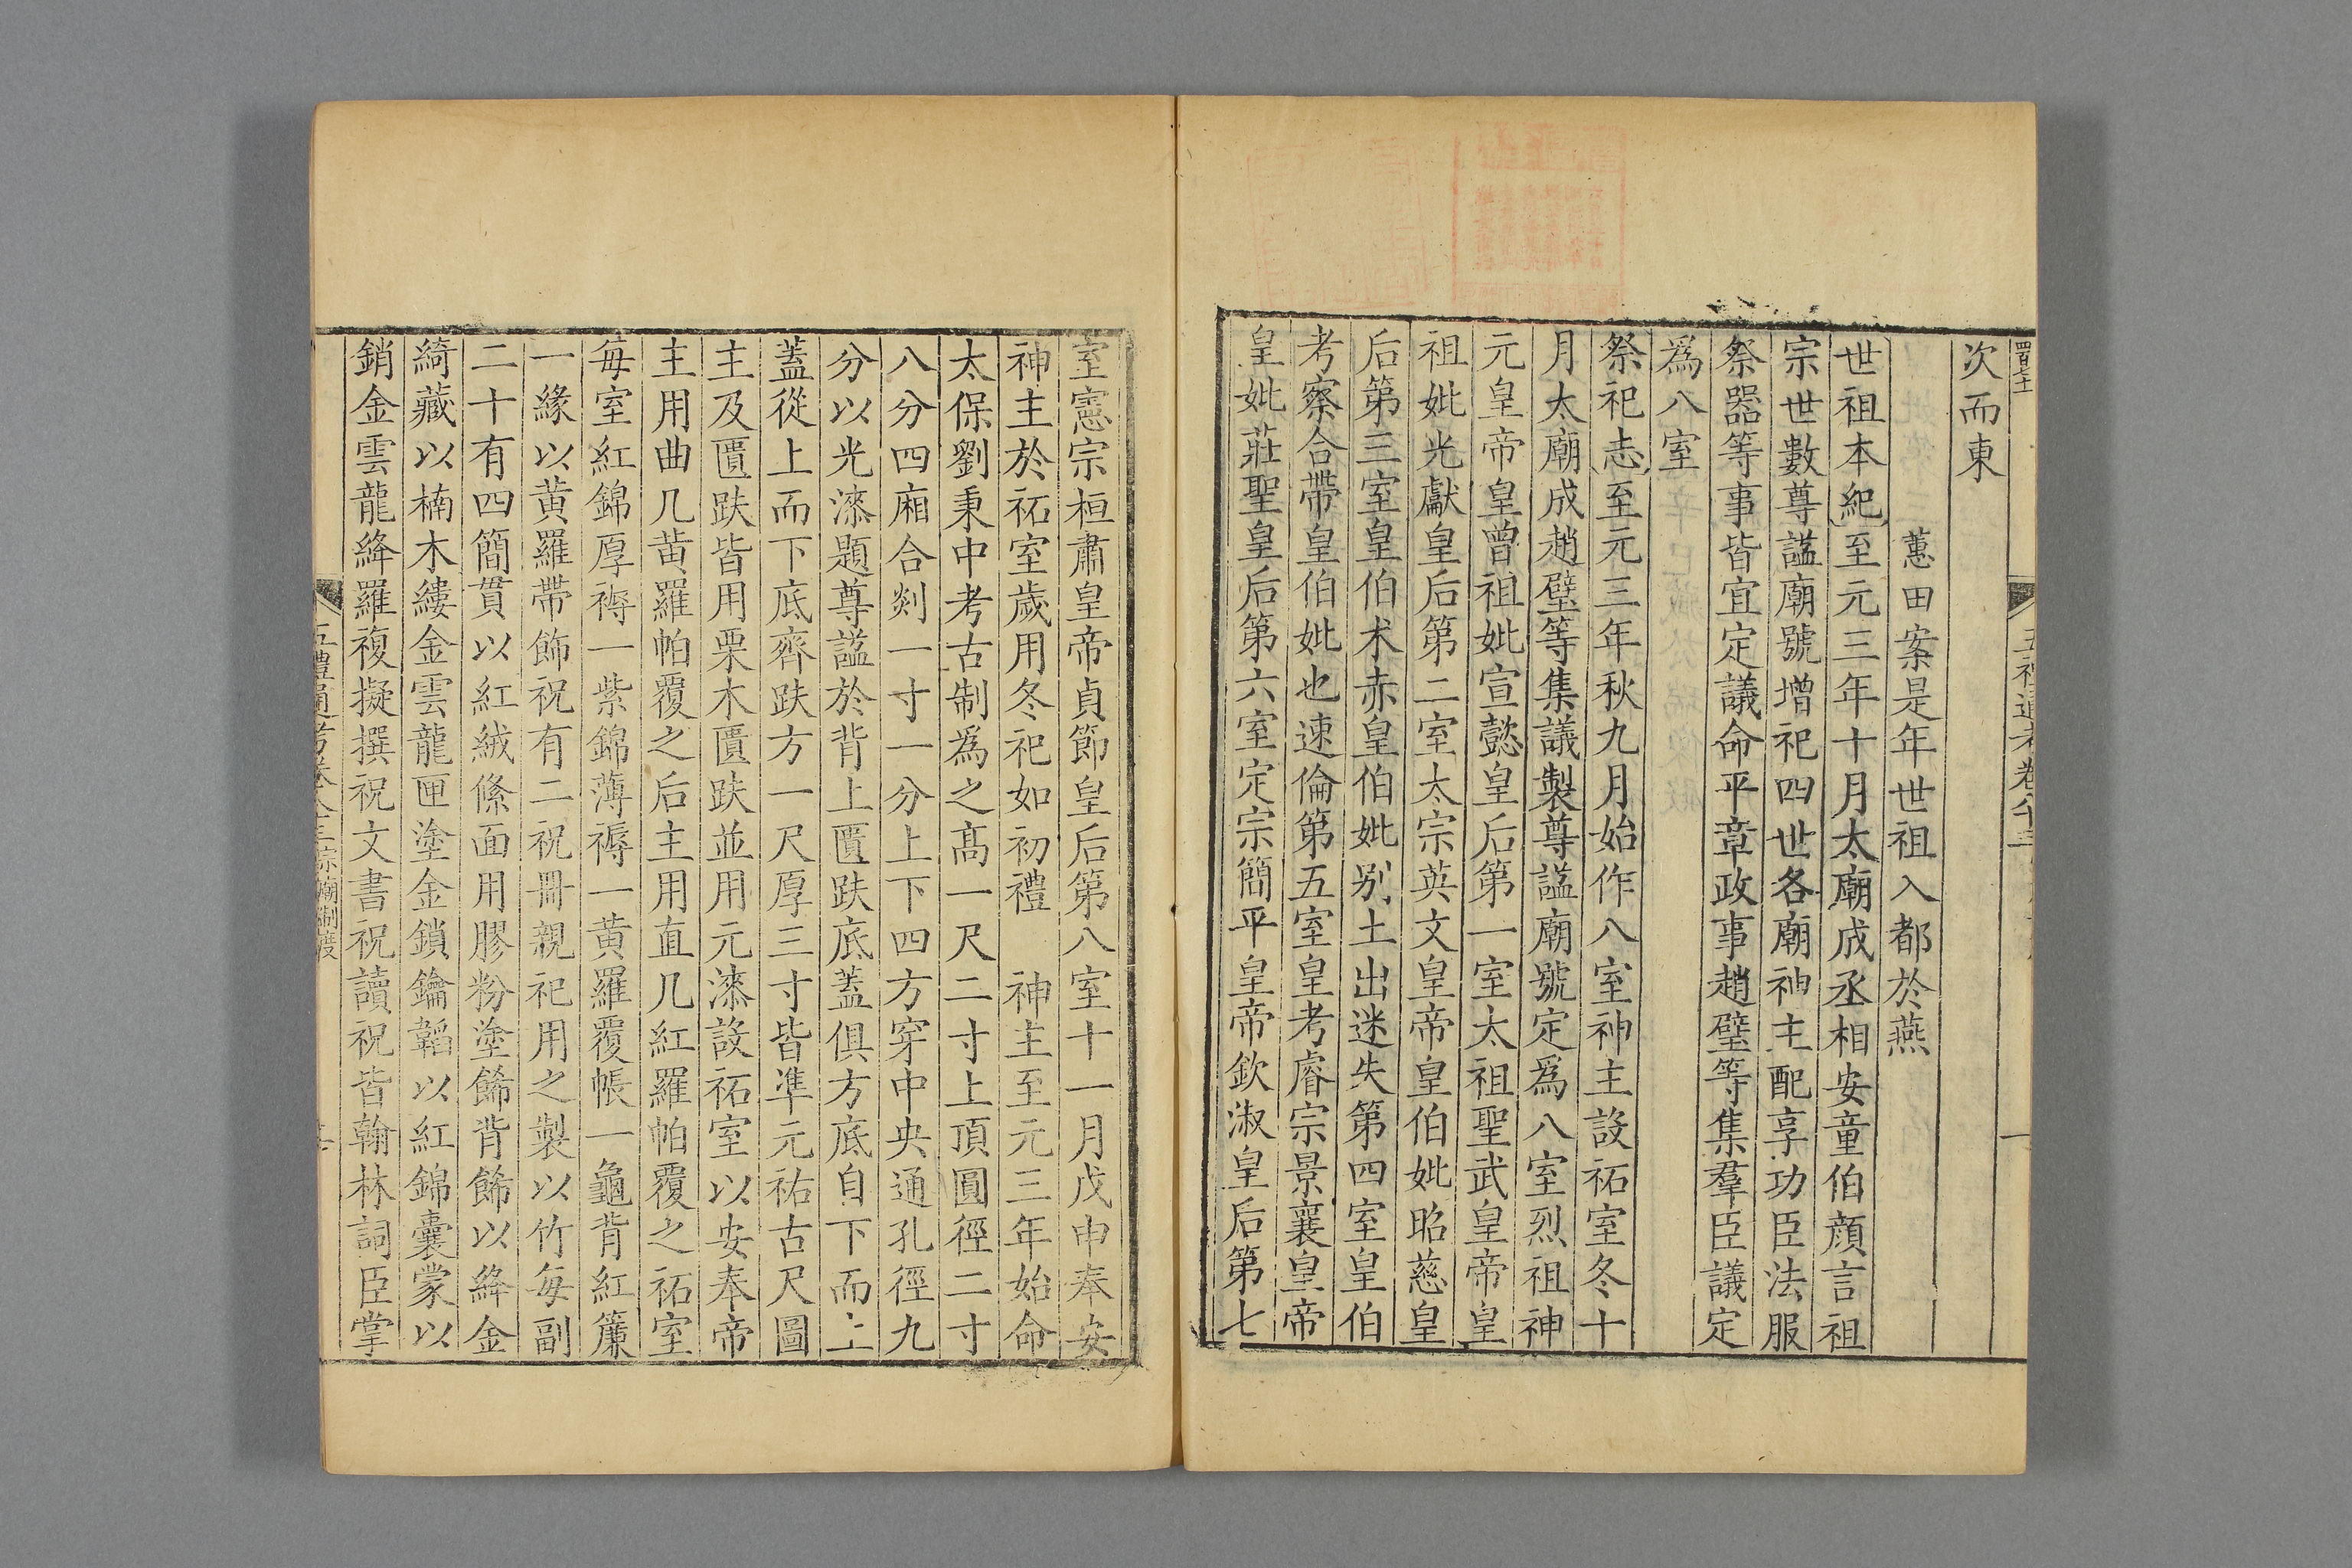 次而東
蕙田案是年世祖入都於燕
世祖本紀至元三年十月太廟成丞相安童伯顔言祖
宗世數尊謚廟號增祀四世各廟神主配享功臣法服
祭器等事皆宜定議命平章政事趙璧等集羣臣議定
爲八室
祭祀志至元三年秋九月始作八室神主設祏室冬十
月太廟成趙璧等集議製尊謚廟號定爲八室烈祖神
元皇帝皇曾祖妣宣懿皇后第一室太祖聖武皇帝皇
祖妣光獻皇后第二室太宗英文皇帝皇伯妣昭慈皇
后第三室皇伯术赤皇伯妣别土出迷失第四室皇伯
考察合帶皇伯妣也速倫第五室皇考睿宗景襄皇帝
皇妣莊聖皇后第六室定宗簡平皇帝欽淑皇后第七
室憲宗桓肅皇帝貞節皇后第八室十一月戊申奉安
神主於祏室歲用冬祀如初禮 神主至元三年始命
太保劉秉中考古制爲之髙一尺二寸上頂圓徑二寸
八分四廂合剡一寸一分上下四方穿中央通孔徑九
分以光漆題尊謚於背上匱趺底蓋俱方底自下而上
蓋從上而下底齊趺方一尺厚三寸皆準元祐古尺圖
主及匱趺皆用栗木匱趺並用元漆設祏室以安奉帝
主用曲几黃羅帕覆之后主用直几紅羅帕覆之祏室
每室紅錦厚褥一紫錦薄褥一黃羅覆帳一龜背紅簾
一緣以黃羅帶飾祝有二祝冊親祀用之製以竹每副
二十有四簡貫以紅絨絛面用膠粉塗飾背飾以絳金
綺藏以楠木縷金雲龍匣塗金鎖鑰韜以紅錦囊蒙以
銷金雲龍絳羅複擬撰祝文書祝讀祝皆翰林詞臣掌